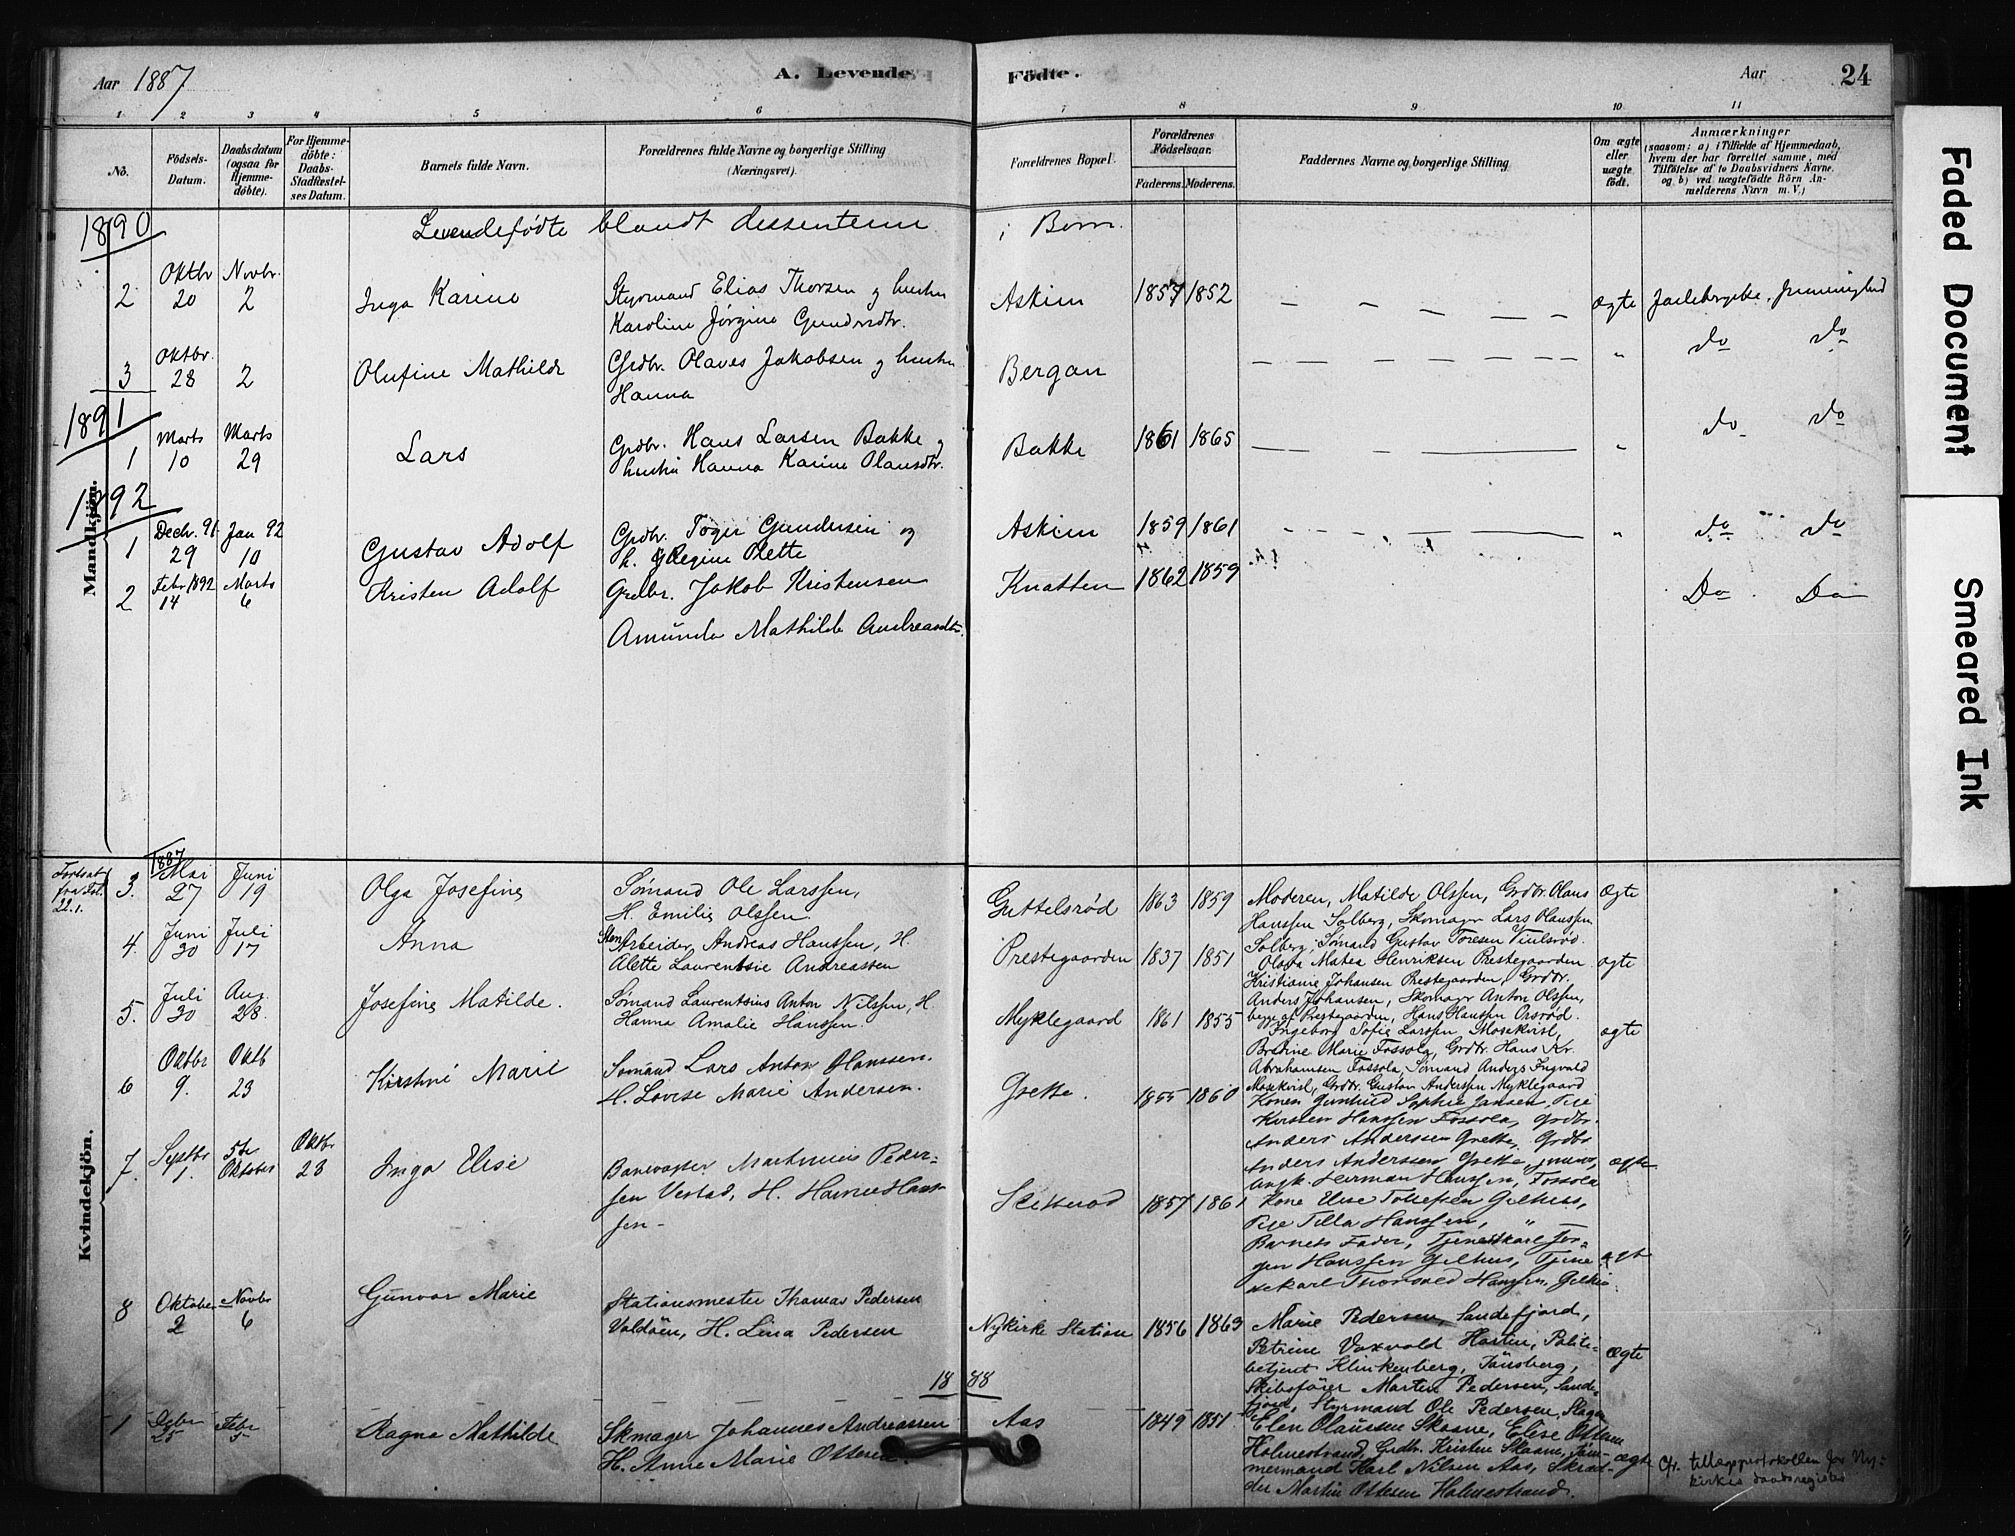 Aar 1887
A. Levende Fødte.
Aar 24
1 2 3 4 5 6 7 8 9 10 11
No.
Fødsels-Datum.
Daabsdatum (ogsaa for Hjemme-døbte).
For Hjemme-døbte: Daabs-Stadfæstel-ses Datum.
Barnets fulde Navn.
Forældrenes fulde Navne og borgerlige Stilling (Næringsvei).
Forældrenes Bopæl.
Forældrenes Fødselsaar.
Faderens. Moderens.
Faddernes Navne og borgerlige Stilling
Om ægte eller uægte født.
Anmærkninger
(saasom: a) i Tilfælde af Hjemmedaab, hvem der har forrettet samme, med Tilføielse af to Daabsvidners Navne, og b) ved uægtefødte Børn An-melderens Navn m. V.)
Mandkjøn.
1890 Levendefødte blandt dissenterne i Borre.
2 Oktbr 20 Novbr. 2 Inga Karine Styrmand Elias Thorsen og hustru Askim 1857 1852 — — — — — ægte
Karoline Jorgine
3 Oktbr. 28 2 Olufine Mathilde Grdbr. Olaves Jakobsen og hustru Bergan — — — — — — " do do
Hanna
1891
1 Marts 10 Marts 29 Lars Grdbr. Hans Larsen Bakke og Bakke 1861 1865 — — — — " do do
hustru Hanna Karine Olausdtr.
1892
1 Decbr. 91 29 Jan 92 10 Gustav Adolf Grdbr. Gundersen og Askim 1859 1861 — — — — " do do
h. Regine Olette
2 Febr 1892 14 Marts 6 Kristen Adolf Grdbr. Jakob Kristensen Knatten 1862 1859 Do Do
Amunda Mathilde Andreasdtr.
Kvindekjøn.
Fortsat fra fol.
1887
3. Mai 27 Juni 19 Olga Josefine Sømand Ole Larssen, Guttelsrød 1863 1859 Moderen, Matilde Olssen, Grdbr. Olaus Ægte
H. Emilie Olssen. Hanssen Solberg, Skomagr Lars Olaussen
Solberg, Sømand Gustav Toresen
4. Juni 30 Juli 17 Anna Arbeider Andreas Hanssen, H. Prestegaarden 1837 1851 Olava Matea Henriksen Prestegaarden ægte
Alette Laurentsie Andreassen Kristiane Johansen Prestegaarden, Grdbr.
Anders Johansen, Skomagr Anton Olssen,
begge af Prestegaarden, Hans Hanssen
5. Juli 30 Aug. 28. Josefine Matilde. Sømand Laurentsius Anton Nilssen, H. Myklegaard 1861 1855 Ingeborg Sofie Larssen, Mosekvisl, ægte
Hanna Amalie Hanssen. Marie Fossola, Grdbr. Hans Kr.
Abrahamsen Fossola, Sømand Anders Ingvald
Mosekvisl, Grdbr. Gustav Anderssen Myklegaard
6 Oktbr 9. Oktb 23 Kirstine Marie Sømand Lars Anton Olaussen. Grette. 1855 1860 Konen Gunhild Sophie Jansen, Pige
H. Lovise Marie Andersen. Kirsten Hanssen Fossola, Grdbr.
Anders Anderssen Grette, Grdbr
Anders Anderssen Grette, junior, ægte
Ungk. Herman Hanssen, Fossola
7. Septbr 1. 5te Oktober Oktbr 23 Inga Elise Banevogter Martinius Peder- 1857 1861 Kone Elise Tollefsen Gilhuss,
sen Vestad, H. Pige Tilla Hanssen, " —
sen- Barnets Fader, Tjenestkarl Jør-
gen Hanssen Gilhus, Tjene- ægte
stekarl Thorvald Hanssen, Gilhus.
8 Oktober 2 Novbr 6 Gunvor Marie Stationsmester Thomas Pedersen Nykirke Station 1856 1863 Marie Pedersen, Sandefjord,
Valdøen, H. Lina Pedersen Petrine Vaxvold Horten, Politi-
betjent Klinkenberg, Tønsberg, Ægte
Skibsfører Martin Pedersen, Sande-
fjord, Styrmand Ole Pedersen, Slagen
18 88
1 Debr 25 Febr 5 Ragna Mathilde Skmager Johannes Andreassen Aas 1849 1851 Elen Olaussen Skaane, Elise Ottesen
H. Anne Marie Ottesen. Holmestrand, Grdb. Kristen Skaane, Tøm-
mermand Karl Nilsen Aas, Skræd- ægte Cfr. tillægsprotokollen for Ny-
der Martin Ottesen Holmestrand. kirkes daabsregister
Faded Document
Smeared Ink